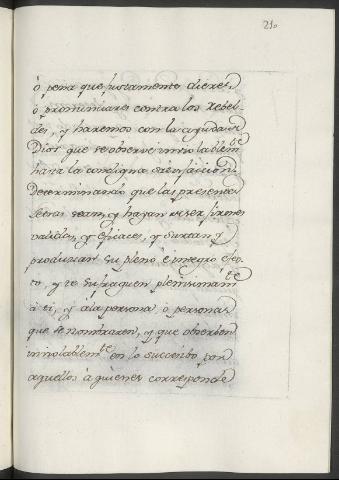 210
ò pena que justamente dieres
ò pronunciares contra los Rebel-
des, y haremos con la ayuda de
Dios que se observe inviolablem.te
hasta la condigna satisfacion.
Determinando que las presentes
letras sean, y hayan de ser firmes
validas, y eficaces, y surtan, y
produzcan su pleno è integro efec-
to, y te sufraguen plenisimam.te
à ti, y à la persona ò personas
que se nombraren, y que observen
inviolablem.te en lo succesibo por
aquellos à quienes corresponde